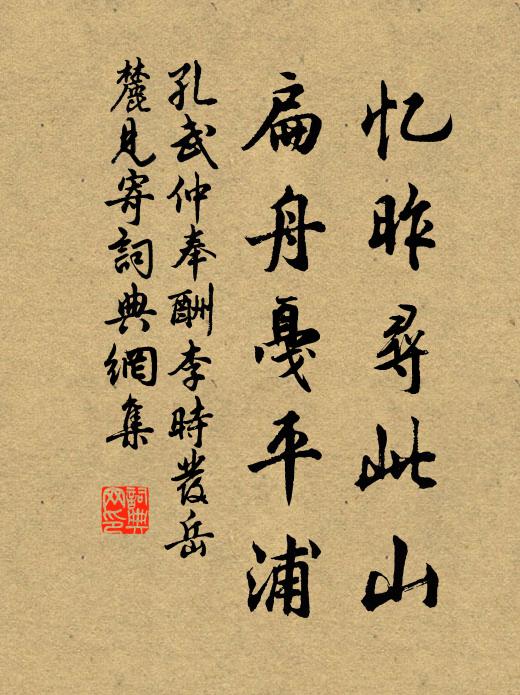 忆昨尋此山
扁舟戛平浦
孔武仲奉酬李時發岳
麓見寄詞典網集
詞典
网印